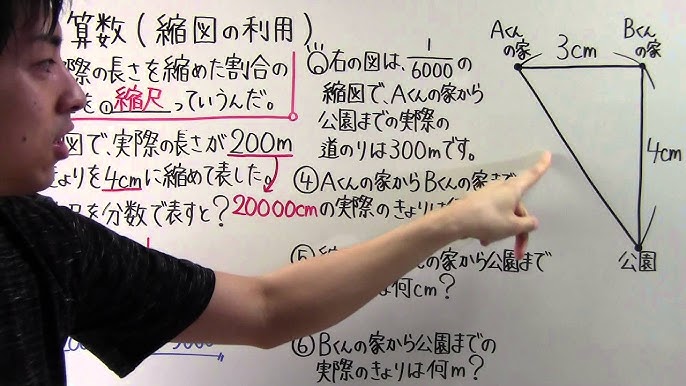 算数(縮図の利用)
際の長さを縮めた割合の
を① 縮尺 っていうんだ。
図で、実際の長さが200m
きょりを4cmに縮めて表した。
を分数で表すと? 20000cm
右の図は、1/6000の
縮図で、Aくんの家から
公園までの実際の
道のりは300mです。
④Aくんの家からBくんの家まで
の実際のきょりは
⑤
の家から公園まで
は何cm?
⑥Bくんの家から公園までの
実際のきょりは何m?
Aくんの家
3cm
Bくんの家
4cm
公園